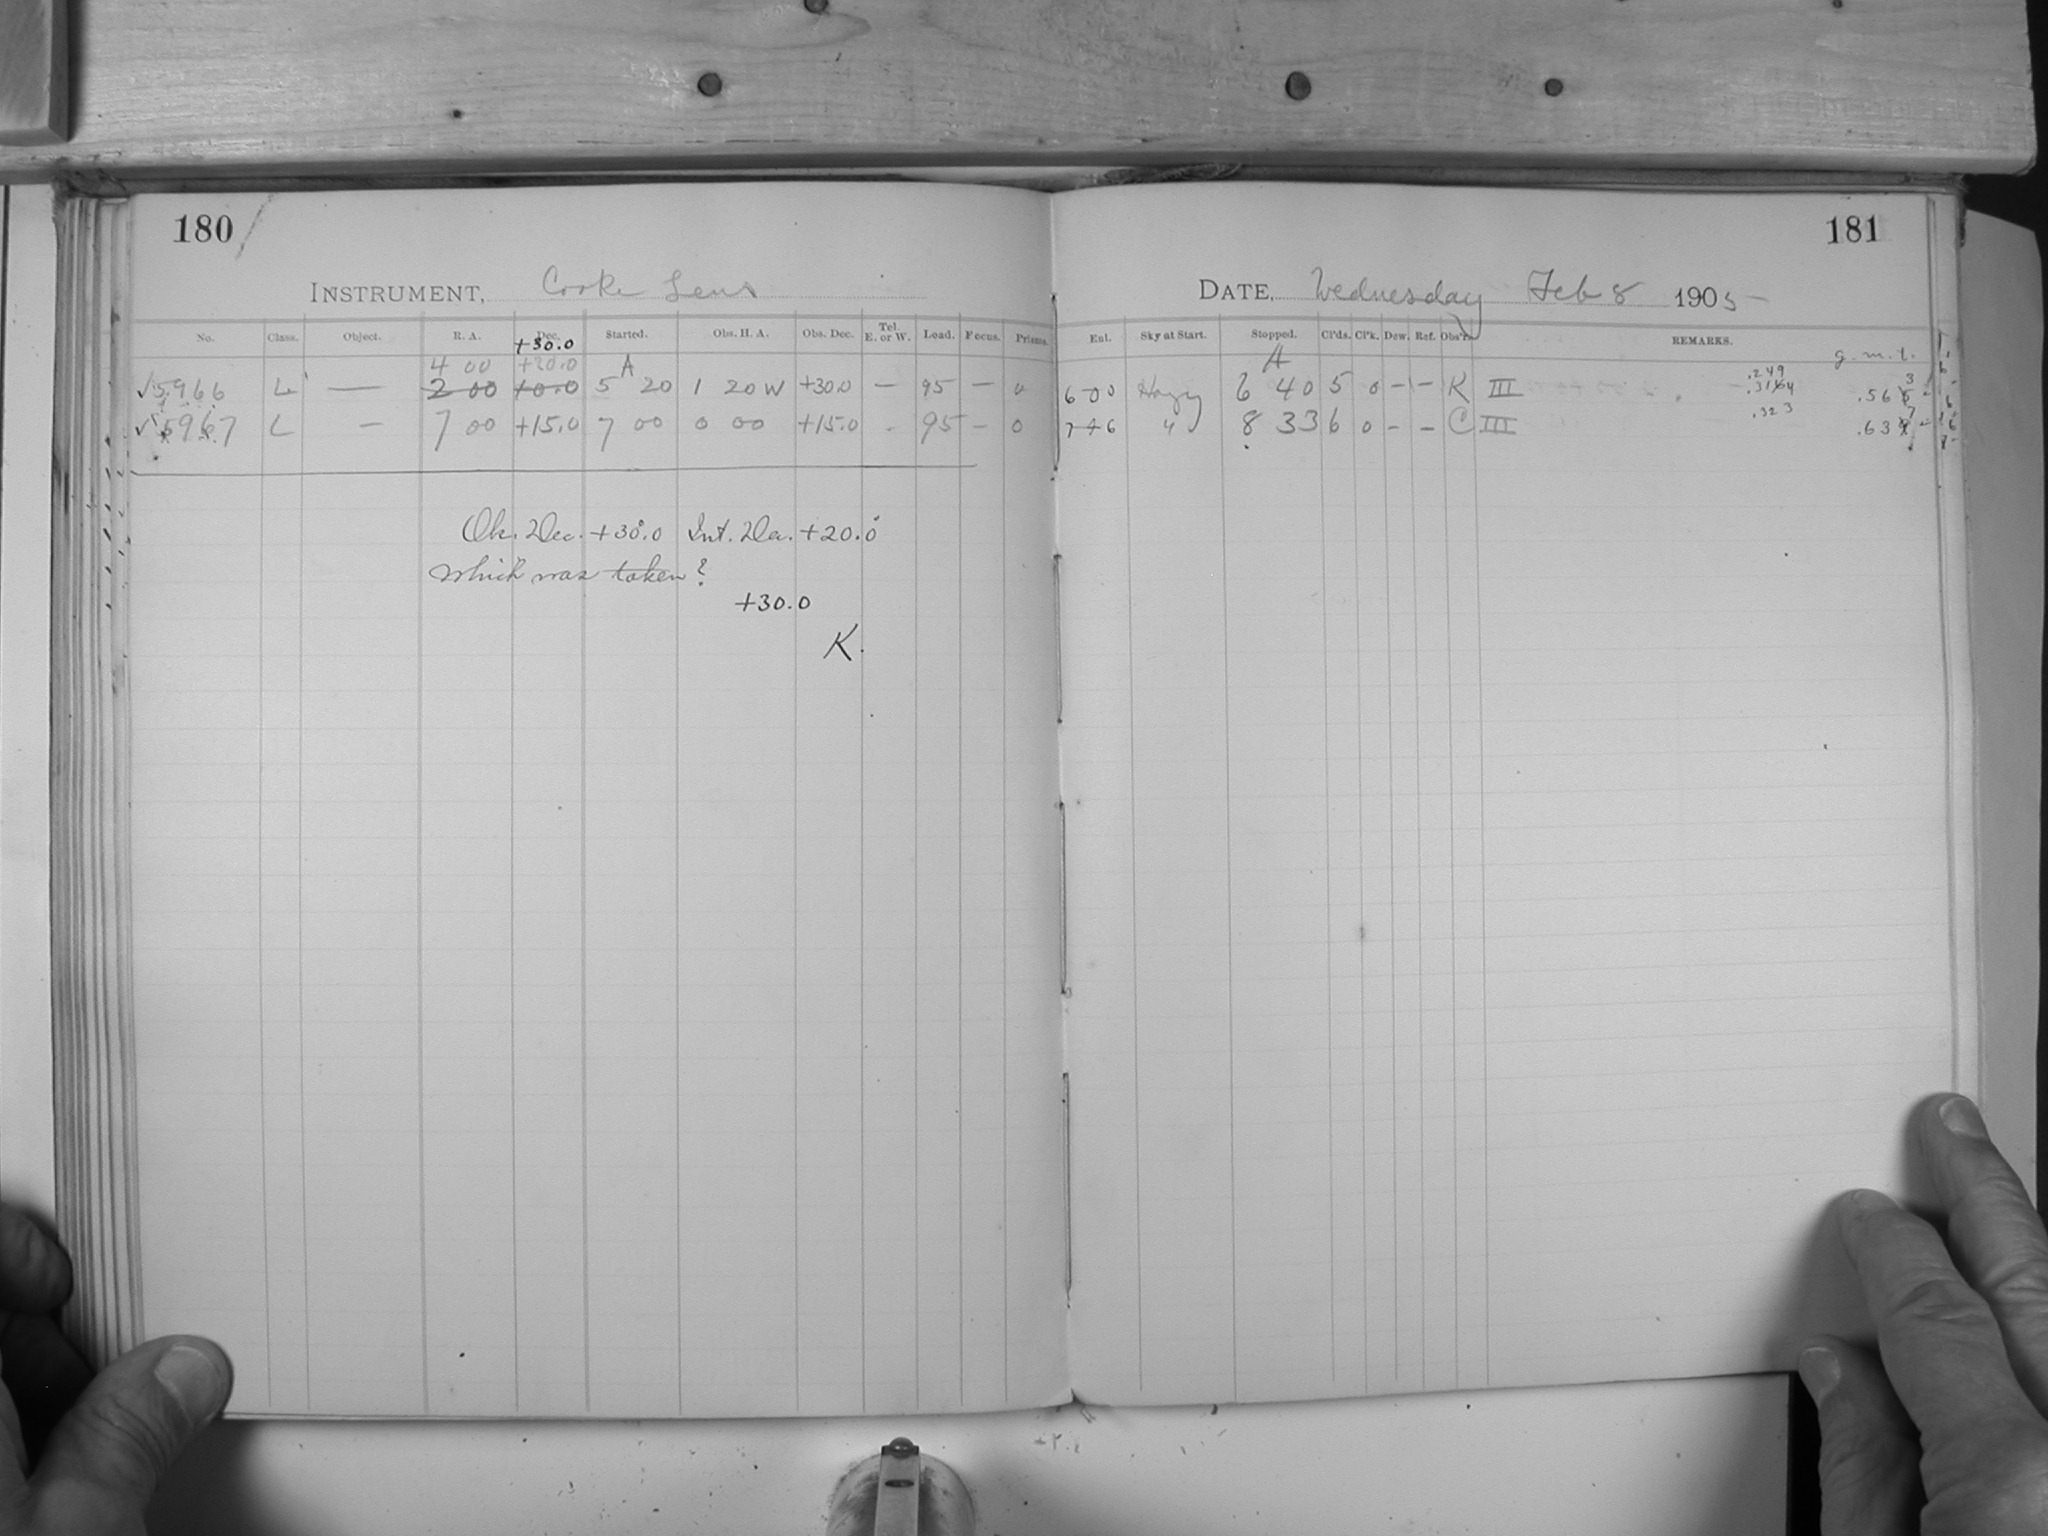 180
INSTRUMENT, Cooke Lens
No. Class. Object. R. A. Dec. Started. Obs. H. A. Obs. Dec. Tel. E. or W. Load. Focus. Prisms.
+30.0
4 00 +20.0 A
√5966 L — 2 00 +0.0 5 20 1 20 W +30.0 — 95 — 0
√5967 L — 7 00 +15.0 7 00 0 00 +15.0 - 95 — 0
Ob. Dec. +30.0 Int. Dec. +20.0
which was taken?
+30.0
K.
181
DATE, Wednesday Feb 8 1905
Enl. Sky at Start. Stopped. Cl'ds. Cl'k. Dew. Ref. Obs'r. REMARKS.
A g. m. t.
.249 3
6 00 Hazy 6 40 5 0 — — K III .56
.323 7
7 46 " 8 33 6 0 — — C III .63